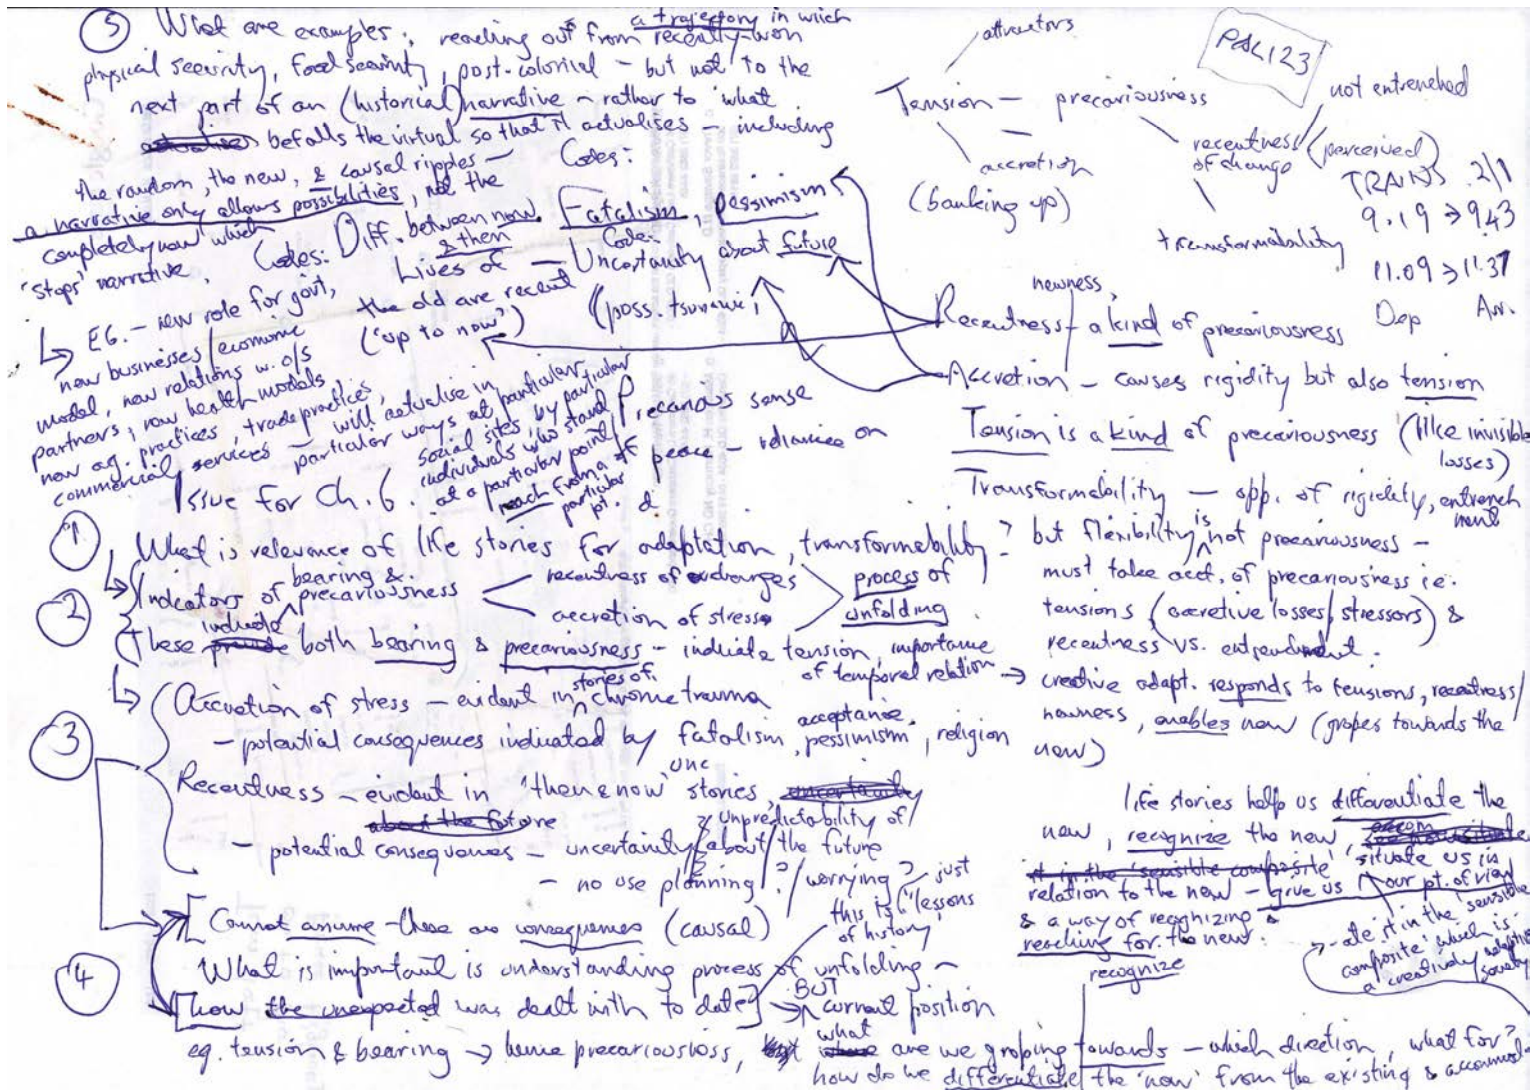 ⑤ What are examples, reaching out from recently-won
a trajectory in which
physical security, food security, post-colonial - but not to the
next part of an (historical) narrative - rather to what
befalls the virtual so that it actualises - including
the random, the new, & causal ripples -
a narrative only allows possibilities, not the
completely new which
'stops' narrative.
Codes:
Codes: Diff. between now & then
Fatalism, pessimism
Code:
Lives of the old are recent ('up to now')
- Uncertainty about future
(poss. tsunami,
↳ EG. - new role for govt,
new businesses / economic
model, new relations w. o/s
partners, new health models,
new ag. practices, trade practices,
commercial services - will actualise in
particular ways at particular
social sites, by particular
individuals who stand
at a particular point /
reach from a
particular
pt.
Precarious sense
of peace - reliance on
Issue for Ch. 6.
① What is relevance of life stories for adaptation, transformability?
② Indicators of bearing & precariousness
recentness of changes
accretion of stress
process of
unfolding
(These indicate both bearing & precariousness - indicate tension, importance
of temporal relation
③ Accretion of stress - evident in stories of chronic trauma
- potential consequences indicated by fatalism, acceptance, pessimism, religion
Recentness - evident in 'then & now' stories, uncertainty
about the future
unpredictability of /
- potential consequences - uncertainty about the future
- no use planning? / worrying?
just
this is "lessons
of history
[Cannot assume these as consequences (causal)
④ What is important is understanding process of unfolding -
[how the unexpected was dealt with to date]
BUT
→ current position
eg. tension & bearing → hence precariousness, what are we groping towards - which direction, what for?
how do we differentiate the 'new' from the existing &
attractors
PAL123
Tension - precariousness
not entrenched
accretion
(banking up)
recentness / (perceived)
of change
transformability
TRAINS 2/1
9.19 → 9.43
11.09 → 11.37
Dep Arr.
newness,
Recentness - a kind of precariousness
Accretion - causes rigidity but also tension
Tension is a kind of precariousness (like invisible
losses)
Transformability - opp. of rigidity, entrenchment
but flexibility is not precariousness -
must take acct. of precariousness ie.
tensions (accretive losses / stressors) &
recentness vs. entrenchment.
→ creative adapt. responds to tensions, recentness /
newness, enables new (gropes towards the
new)
life stories help us differentiate the
new, recognize the new,
it in the 'sensible composite' situate us in
relation to the new - give us our pt. of view
& a way of recognizing &
reaching for the new.
recognize
it in the 'sensible
composite' which is
a creatively adaptive
society